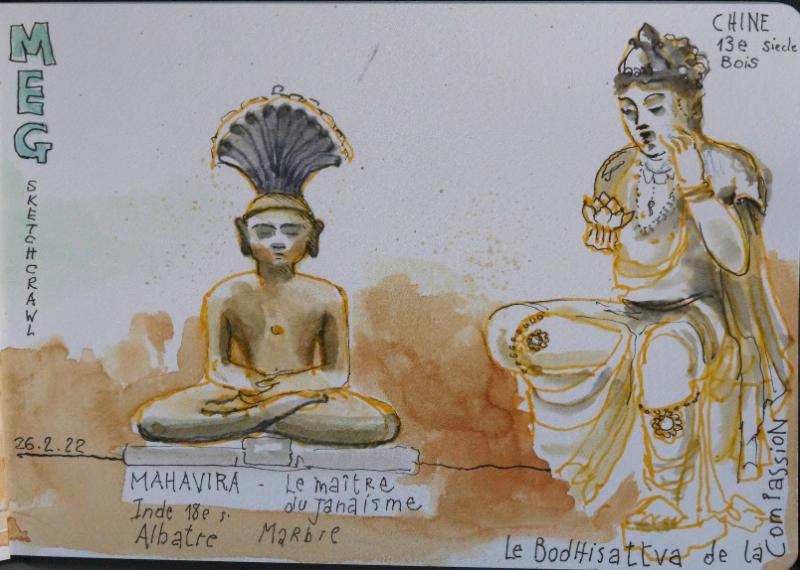 MEG
SKETCHCRAWL
CHINE
13e siecle
Bois
26.2.22
MAHAVIRA - Le maître
du Janaisme
Inde 18e s.
Albatre Marbre
Le BodHisattva de la Compassion